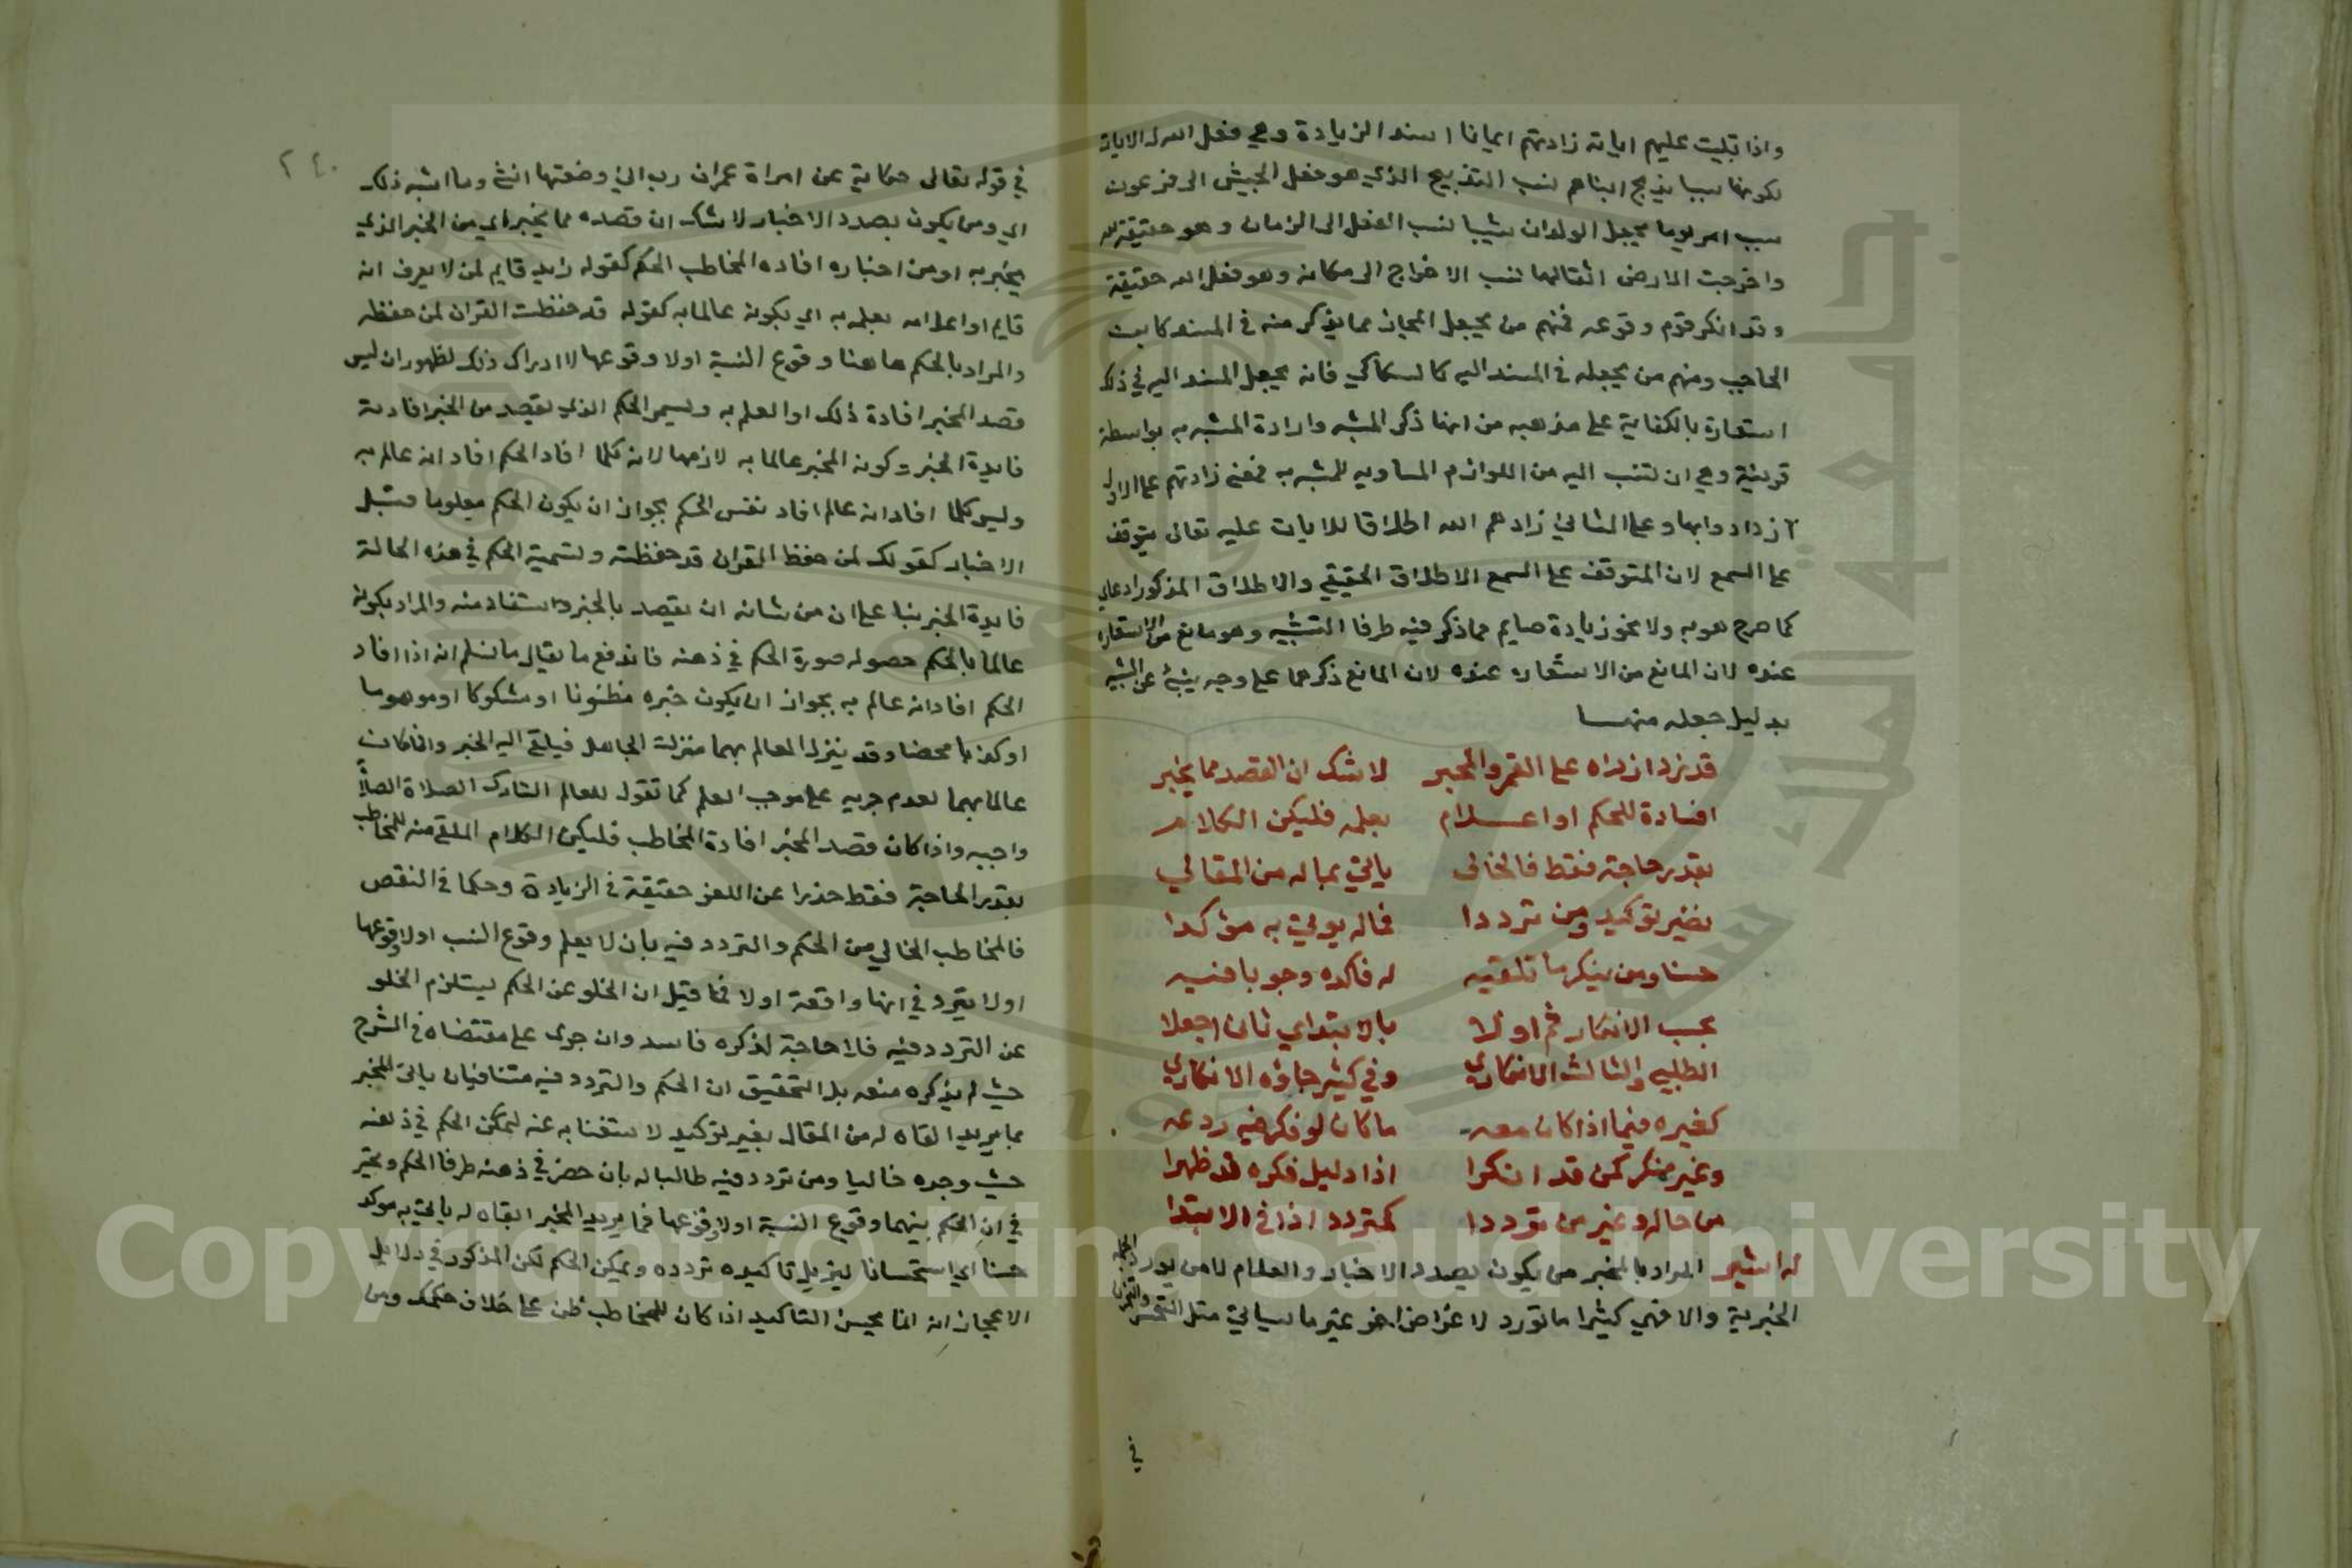 واذا تليت عليهم اياته زادتهم ايمانا اسند الزيادة وهي فعل الله الى الايات
لكونها سببا يذبح ابناهم نسب التذبيح الذي هو فعل الجيش الى فرعون
سبب امر يوما يجعل الولدان شيبا نسب الفعل الى الزمان وهو حقيقة لله
واخرجت الارض اثقالها نسب الاخراج الى مكانه وهو فعل الله حقيقة
وقد انكر قوم وقوعه فمنهم من يجعل المجاز مما يذكر منه في المسند كابن
الحاجب ومنهم من يجعله في المسند اليه كالسكاكي فانه يجعل المسند اليه في ذلك
استعارة بالكناية على مذهبه من انها ذكر المشبه وارادة المشبه به بواسطة
قرينة وهي ان تنسب اليه من اللوازم المساويه للمشبه به فمعنى زادتهم على الاول
ازدادوا بها وعلى الثاني زادهم الله اطلاقا للايات عليه تعالى يتوقف
على السمع لان المتوقف على السمع الاطلاق الحقيقي والاطلاق المذكور ادعاي
كما صرح هو به ولا نحو زيادة صايم مما ذكر فيه طرفا التشبيه وهو مانع من الاستعارة
عنده لان المانع من الاستعاره عنده لان المانع ذكرهما على وجه ينبئ عن التشبيه
بدليل جعله منهما
قد زرد ازراره على القمر والمخبر لا شك ان القصد مما يخبر
افادة للحكم او اعلام بعلمه فليكن الكلام
بقدر حاجة فقط فالخالي ياتي بماله من المقالي
بغير توكيد ومن ترددا فماله يوتى به مؤكدا
حسنا ومن ينكر ما تلقيه له فاكده وجوبا فيه
بحسب الانكار ثم اولا بالابتداي ثان اجعلا
الطلبي والثالث الانكاري وفي كثير جاوه الانكاري
كغيره فيما اذا كان معه ما كان لو فكر فيه ردعه
وغير منكر كمن قد انكرا اذا دليل فكره قد ظهرا
من حاله وغير من ترددا كمتردد اذا في الابتدا
المراد بالمخبر من يكون بصدد الاخبار والعلام لا من يورد
الخبرية والا فهي كثيرا ما تورد لاغراض اخر غير ما سياتي مثل التحسر والتحزن
في
٢٤٠
في قوله تعالى حكاية عن امراة عمران رب اني وضعتها انثى وما اشبه ذلك
اي ومن يكون بصدد الاخبار لا شك ان قصده مما يخبر اي من الخبر الذي
يخبر به او من اخباره افاده المخاطب الحكم كقوله زايد قايم لمن لا يعرف انه
قايم او اعلامه بعلمه به اي بكونه عالما به كقوله قد حفظت القران لمن حفظه
والمراد بالحكم هاهنا وقوع النسبة اولا وقوعها لا ادراك ذلك لظهور ان ليس
قصد المخبر افادة ذلك او العلم به ويسمى الحكم الذي يقصد من الخبر افادته
فايدة الخبر وكونه المخبر عالما به لازمها لانه كلما افاد الحكم افاد انه عالم به
وليس كلما افاد انه عالم افاد نفس الحكم بجواز ان يكون الحكم معلوما قبل
الاخبار كقولك لمن حفظ القران قد حفظته وتسمية الحكم في هذه الحالة
فايدة الخبر بنا على ان من شانه ان يقصد بالخبر ويستفاد منه والمراد بكونه
عالما بالحكم حصول صورة الحكم في ذهنه فاندفع ما يقال ما نسلم انه اذا افاد
الحكم افاد انه عالم به بجواز ان يكون خبره مظنونا او مشكوكا او موهوما
او كذبا محضا وقد ينزل العالم بهما منزلة الجاهل فيلقى اليه الخبر وان كان
عالما بهما لعدم جريه على موجب العلم كما تقول للعالم التارك الصلاة الصلاة
واجبه واذا كان قصد المخبر افادة المخاطب فليكن الكلام الملقى منه للمخاطب
بقدر الحاجة فقط حذرا عن اللغو حقيقة في الزيادة وحكما في النقص
فالمخاطب الخالي من الحكم والتردد فيه بان لا يعلم وقوع النسب اولا وقوعها
اولا يتردد في انها واقعة اولا فما قيل ان الخلو عن الحكم يستلزم الخلو
عن التردد فيه فلا حاجة لذكره فاسد وان جرى على مقتضاه في الشرح
حيث لم يذكره منعه بل التحقيق ان الحكم والتردد فيه متنافيان ياتي المخبر
بما يريد القاه له من المقال بغير توكيد لاستغنا به عنه لتمكن الحكم في ذهنه
حيث وجده خاليا ومن تردد فيه طالبا له بان حضر في ذهنه طرفا الحكم وتحير
في ان الحكم بينهما وقوع النسبة اولا وقوعها فما يريد المخبر القاه له ياتي به موكد
حسنا اي استحسانا ليزيل تاكيده تردده ويمكن الحكم لكن المذكور في دلايل
الاعجاز انه انما يحسن التاكيد اذا كان للمخاطب ظن على خلاف حكمك ومن
Copyright © King Saud University